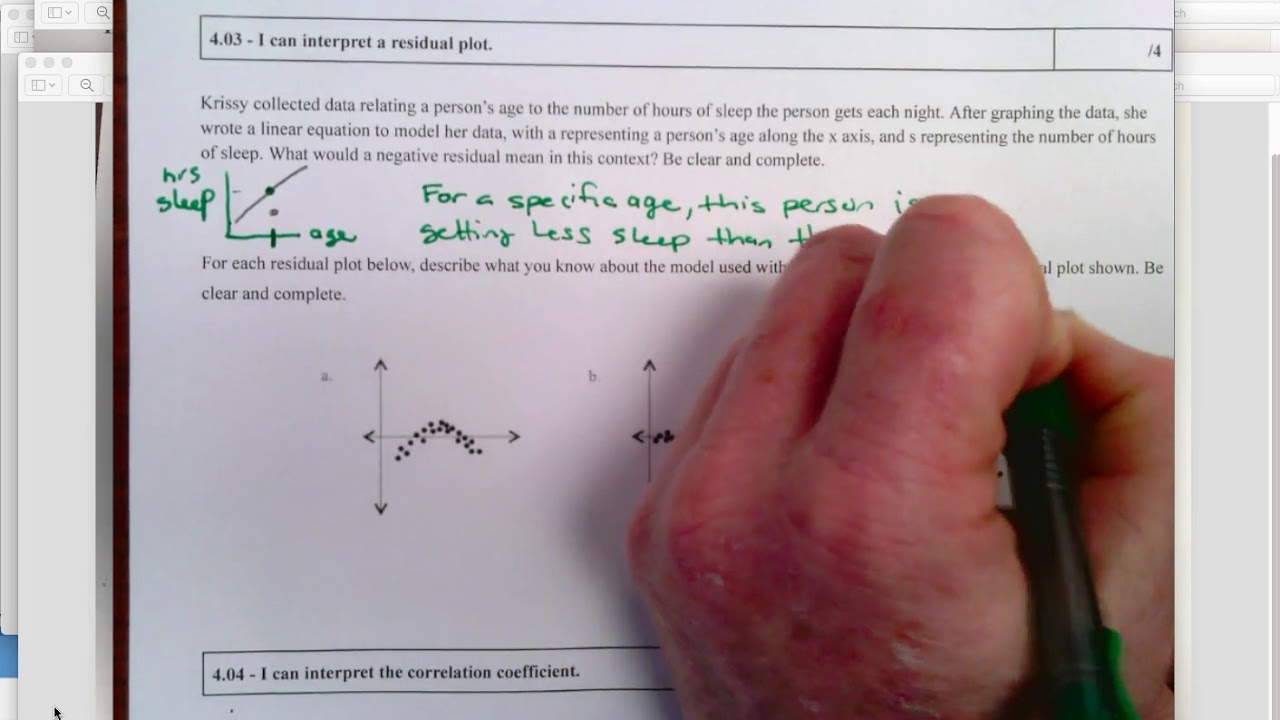 4.03 - I can interpret a residual plot.
/4
Krissy collected data relating a person's age to the number of hours of sleep the person gets each night. After graphing the data, she
wrote a linear equation to model her data, with a representing a person's age along the x axis, and s representing the number of hours
of sleep. What would a negative residual mean in this context? Be clear and complete.
hrs
sleep
age
For a specific age, this person
getting less sleep than
For each residual plot below, describe what you know about the model used
al plot shown. Be
clear and complete.
a.
b.
4.04 - I can interpret the correlation coefficient.